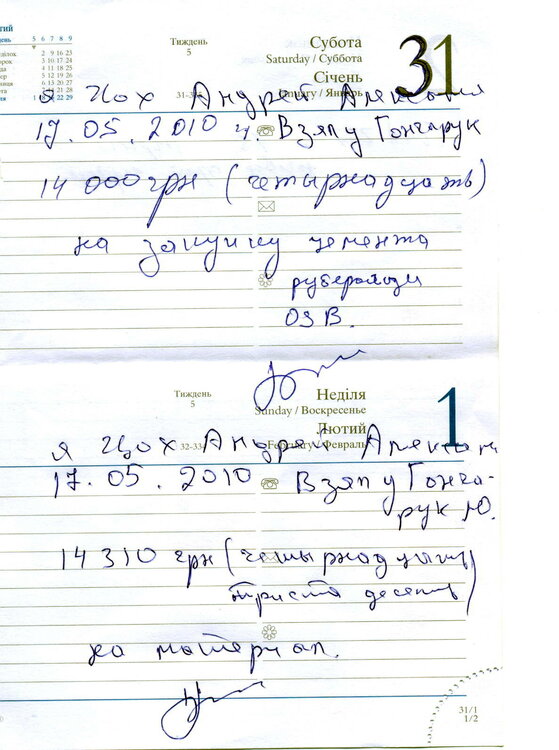 5 6 7 8 9
2 9 16 23
3 10 17 24
4 11 18 25
5 12 19 26
6 13 20 27
7 14 21 28
1 8 15 22 29
Тиждень
5
Субота
Saturday / Суббота
Січень
31
Я Цох Андрей
17.05.2010 г. Взял у Гончарук
14 000 грн (четырнадцать)
на закупку цемента
рубероида
ОЗВ.
Тиждень
5
Неділя
Sunday / Воскресенье
Лютий
February / Февраль
1
Я Цох Андрей
17.05.2010 Взял у Гонча-
рук Ю.
14310 грн (четырнадцать
триста десять)
на материал.
31/1
1/2